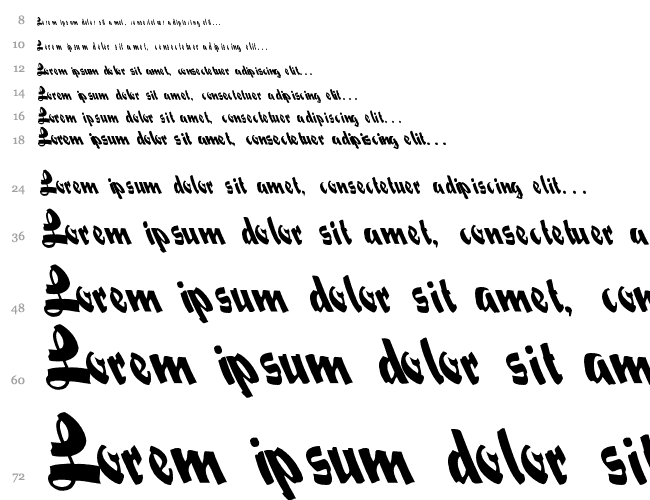 8 Lorem ipsum dolor sit amet, consectetuer adipiscing elit...
10 Lorem ipsum dolor sit amet, consectetuer adipiscing elit...
12 Lorem ipsum dolor sit amet, consectetuer adipiscing elit...
14 Lorem ipsum dolor sit amet, consectetuer adipiscing elit...
16 Lorem ipsum dolor sit amet, consectetuer adipiscing elit...
18 Lorem ipsum dolor sit amet, consectetuer adipiscing elit...
24 Lorem ipsum dolor sit amet, consectetuer adipiscing elit...
36 Lorem ipsum dolor sit amet, consectetuer a
48 Lorem ipsum dolor sit amet, con
60 Lorem ipsum dolor sit am
72 Lorem ipsum dolor sit